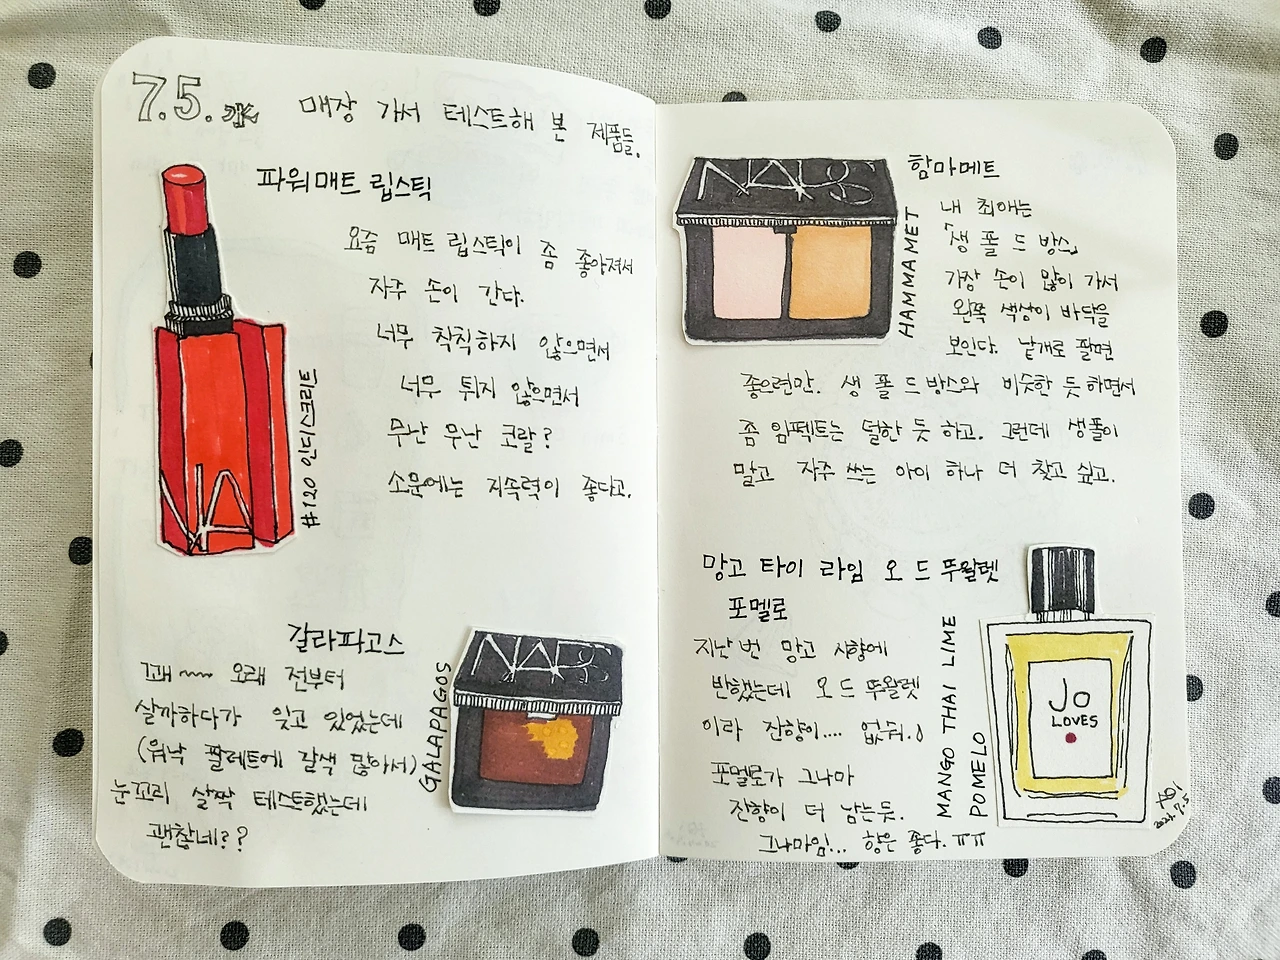 7.5. 水 매장 가서 테스트해 본 제품들.
파워매트 립스틱
요즘 매트 립스틱이 좀 좋아져서
자주 손이 간다.
너무 착칙하지 않으면서
너무 튀지 않으면서
무난 무난 코랄?
소문에는 지속력이 좋다고.
#120 인디스크리트
NA
갈라파고스
꽤~~ 오래 전부터
살까하다가 잊고 있었는데
(워낙 팔레트에 갈색 많아서)
눈꼬리 살짝 테스트했는데
괜찮네??
GALAPAGOS
NARS
NARS
함마메트
HAMMAMET
내 최애는
「생 폴 드 방스」
가장 손이 많이 가서
왼쪽 색상이 바닥을
보인다. 낱개로 팔면
좋으련만. 생 폴 드 방스와 비슷한 듯 하면서
좀 임팩트는 덜한 듯 하고. 그런데 생폴이
말고 자주 쓰는 아이 하나 더 찾고 싶고.
망고 타이 라임 오 드 뚜왈렛
포멜로
지난번 망고 시향에
반했는데 오 드 뚜왈렛
이라 잔향이.... 없숴.
포멜로가 그나마
잔향이 더 남는듯.
그나마임... 향은 좋다. ㅠㅠ
MANGO THAI LIME
POMELO
Jo
LOVES
2023. 7. 5